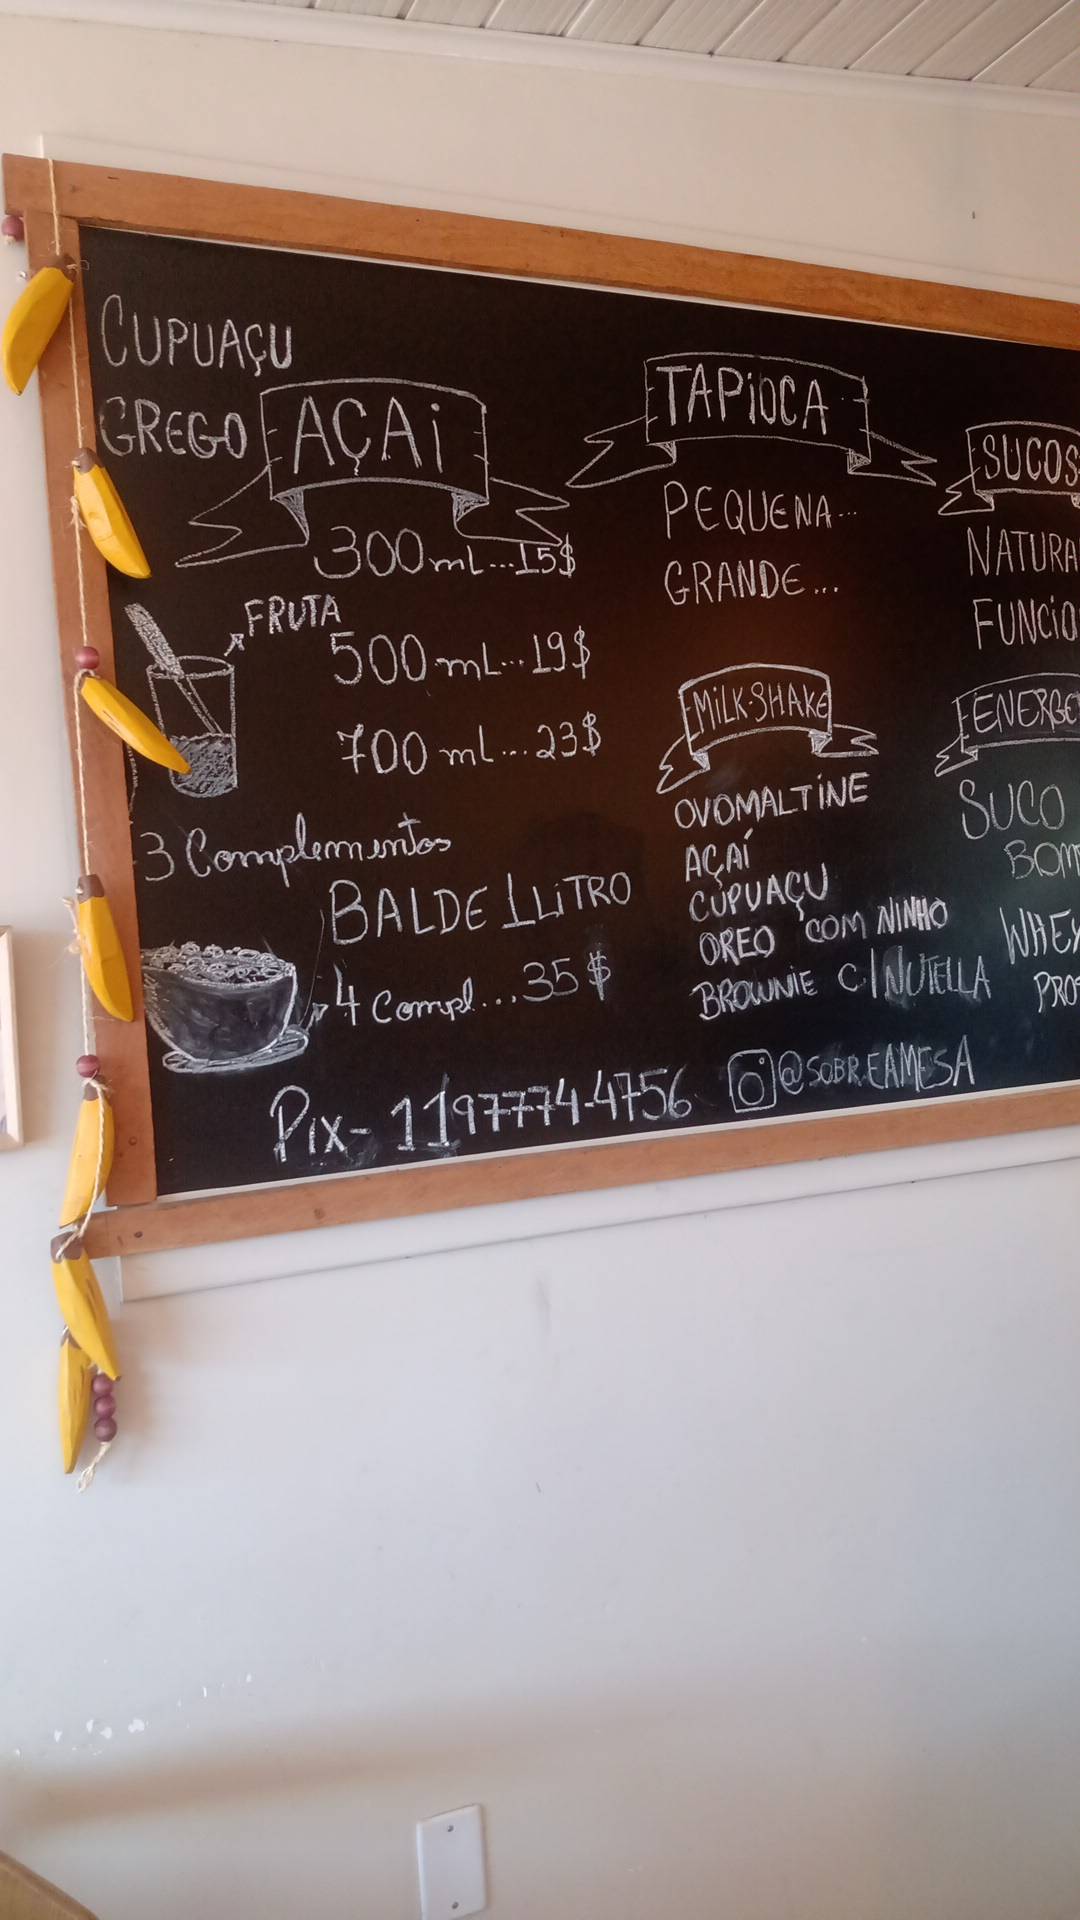 CUPUAÇU
GREGO
AÇAi
300 mL...15$
FRUTA
500 mL...19$
700 mL...23$
3 Complementos
BALDE 1 LiTRO
4 Compl...35$
TAPiOCA
PEQUENA...
GRANDE...
MiLK-SHAKE
OVOMALTiNE
AÇAÍ
CUPUAÇU
OREO COM NINHO
BROWNIE C/ NUTELLA
SUCOS
NATURA
FUNCiO
ENERGE
SUCO
BOM
WHEY
PRO
Pix- 11 97774-4756
@SOBREAMESA